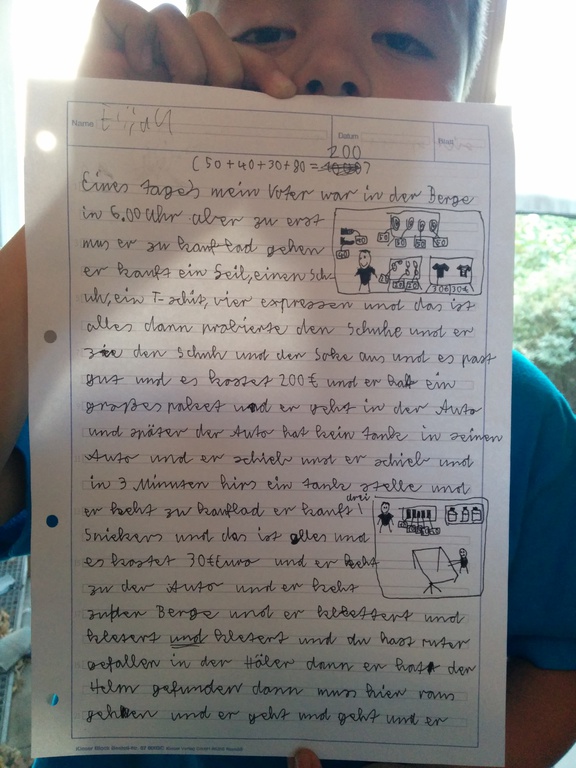 Name Elijah
Datum
Blatt
200
(50+40+30+80=
Eines tages mein Vater war in der Berge
in 6.00 Uhr aber zu erst
mus er zu kauflad gehen
er kauft ein Seil, einen Sch
uh, ein T-schit, vier expressen und das ist
alles dann probierte den Schuhe und er
den Schuh und den Soke aus und es past
gut und es kostet 200€ und er hat ein
großes paket und er geht in der Auto
und später der Auto hat kein tank in seinen
Auto und er schieb und er schieb und
in 3 Minuten hirs ein tank stelle und
drei
er keht zu kauflad er kauft
Snickers und das ist alles und
es kostet 30€Euro und er keht
zu der Auto und er keht
Berge und er klettert und
und und du hast runter
gefallen in der Höler dann er hat der
Helm gefunden dann muss hier raus
gehen und er geht und geht und er
30€ 30€